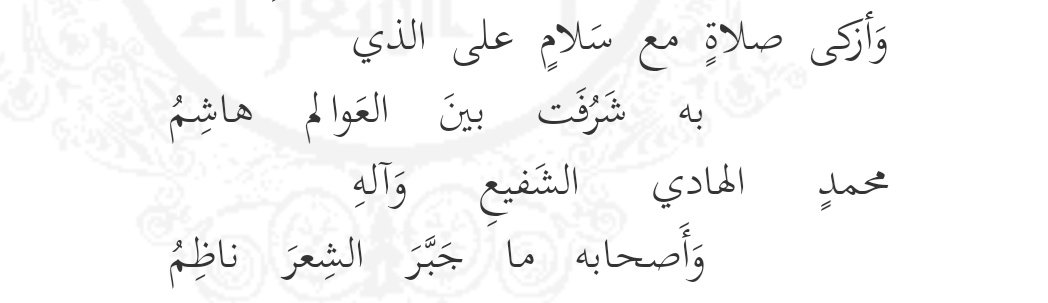 وَأزكى صلاةٍ مع سَلامٍ على الذي
به شَرُفَت بينَ العَوالم هاشِمُ
محمدٍ الهادي الشَفيعِ وَآلهِ
وَأَصحابه ما جَبَّرَ الشِعرَ ناظِمُ